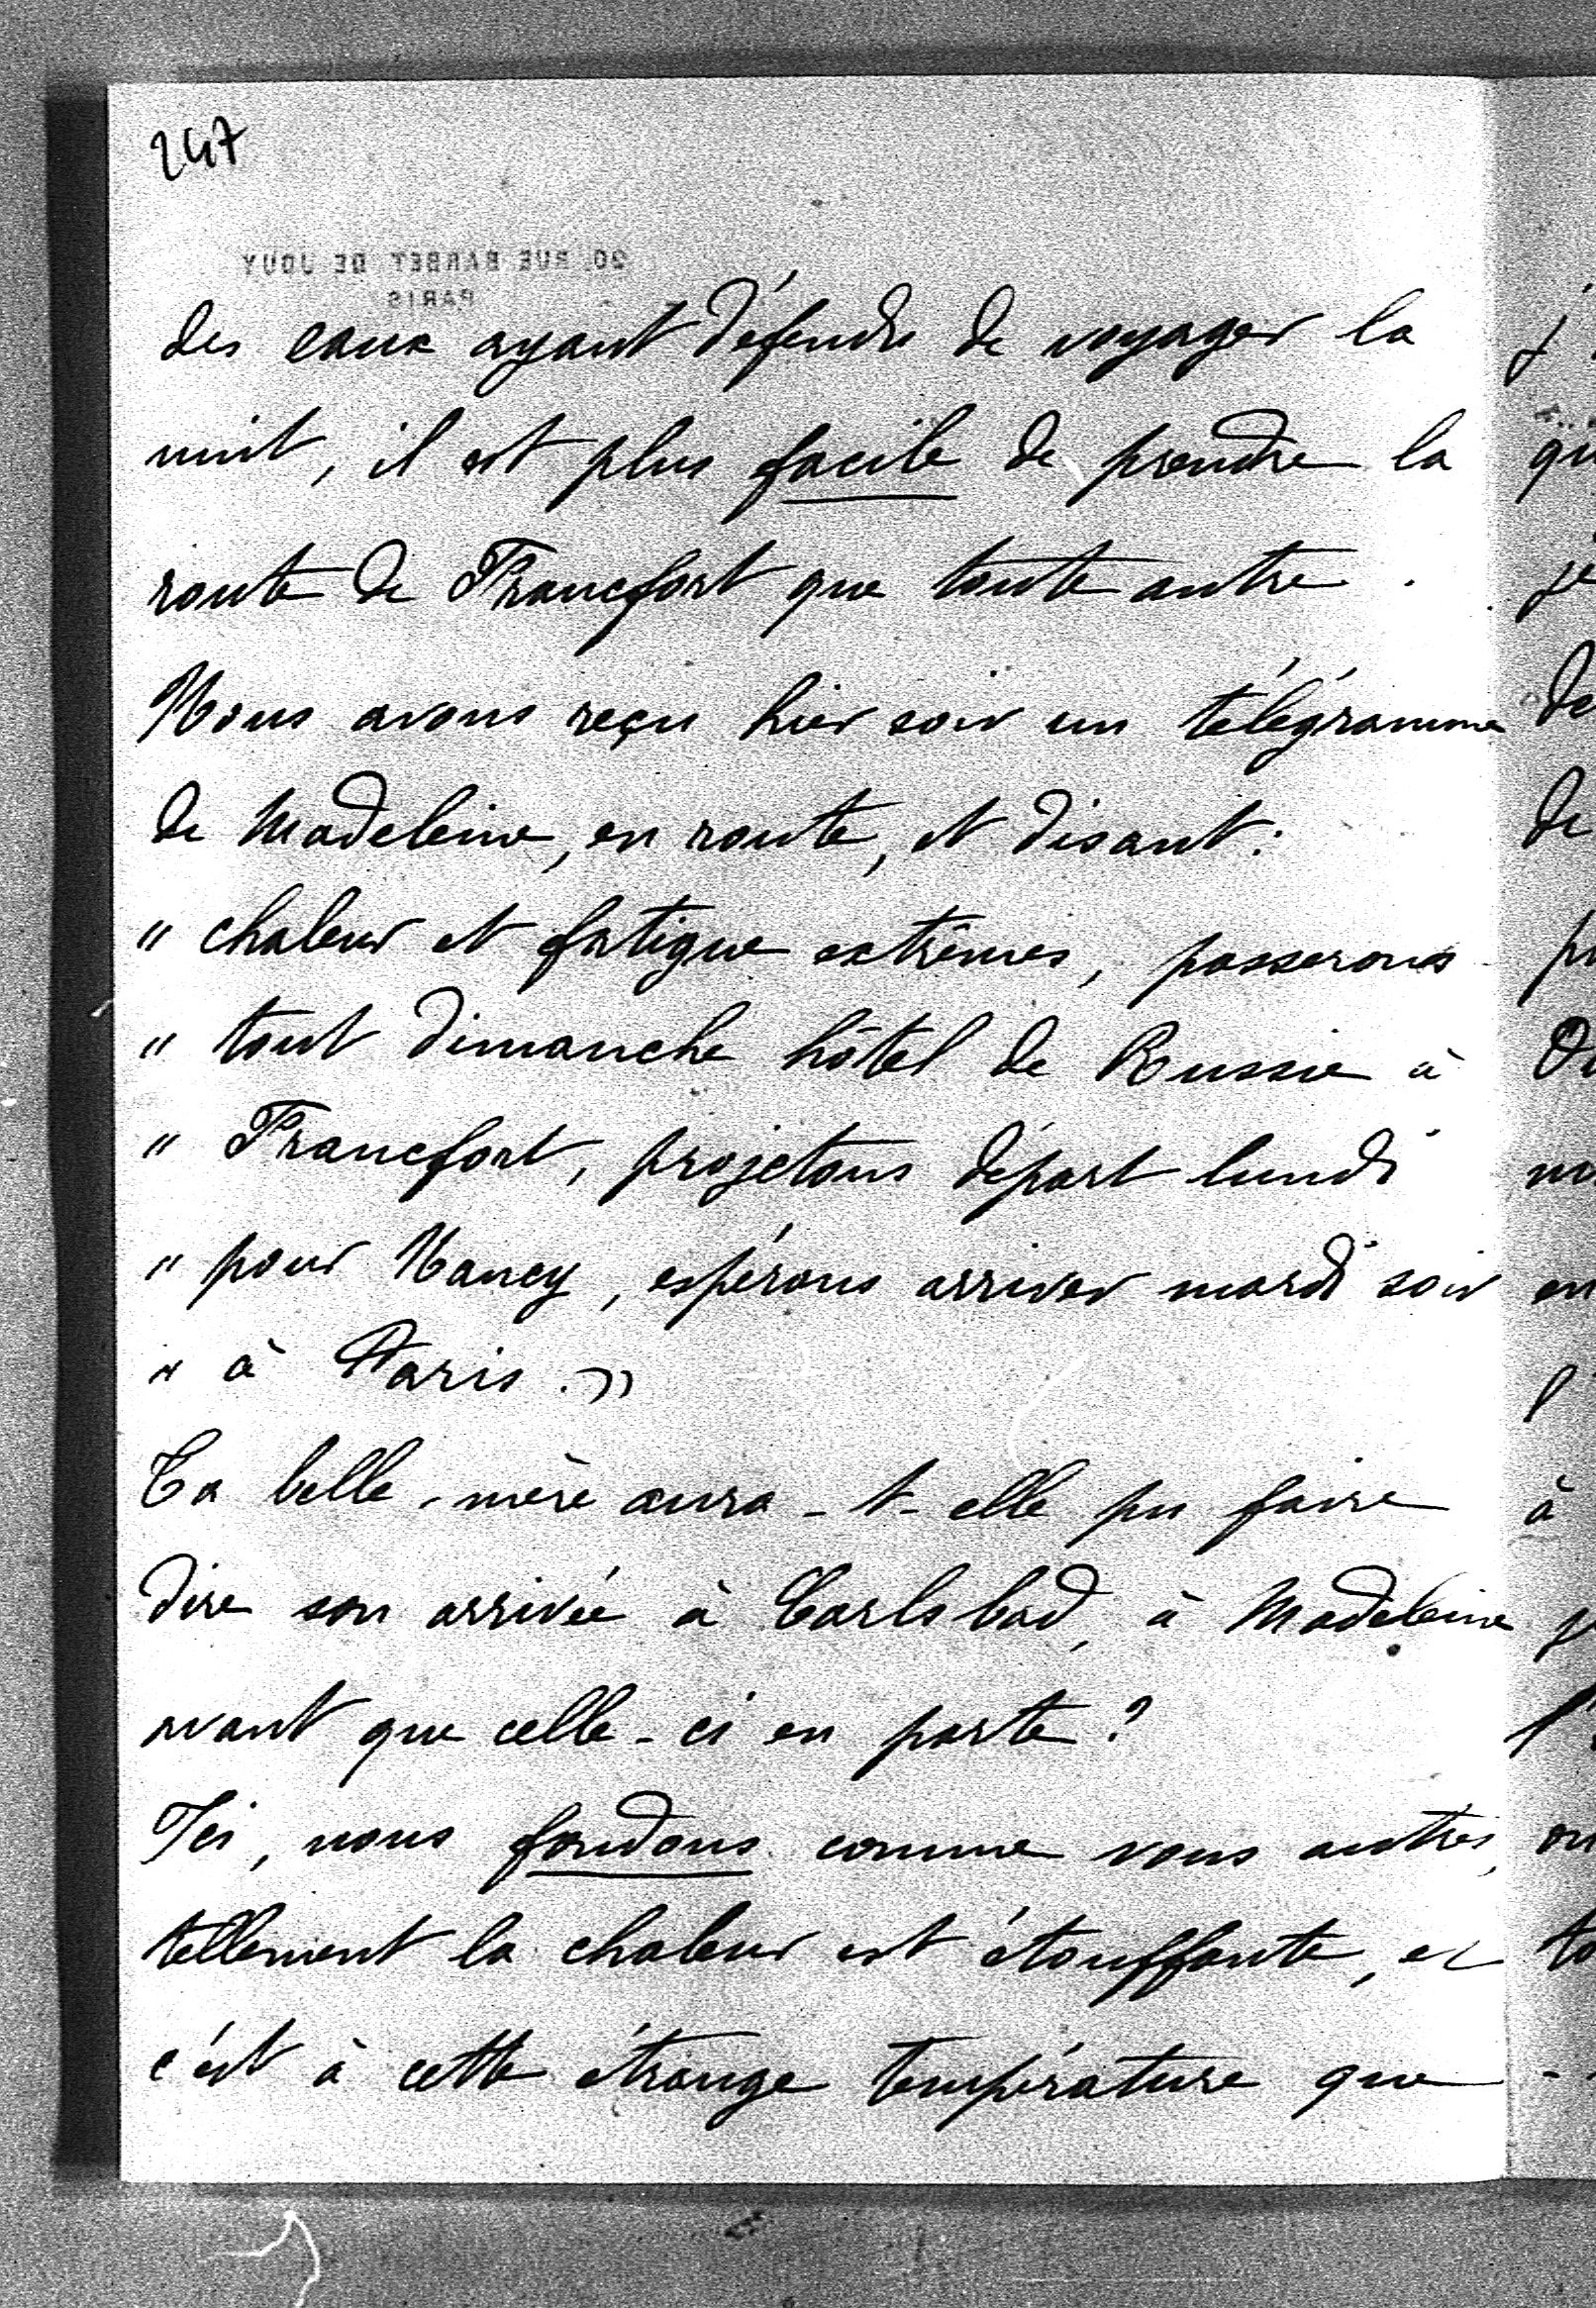 247
20, RUE BARBET DE JOUY
PARIS
des eaux ayant défendu de voyager la
nuit, il est plus facile de prendre la
route de Francfort que toute autre.
Nous avons reçu hier soir un télégramme
de Madeleine, en route, et disant:
" chaleur et fatigue extrêmes, passerons
" tout dimanche hôtel de Russie à
" Francfort, projetons départ lundi
" pour Nancy, espérons arriver mardi soir
" à Paris. »
Ta belle-mère aura-t-elle pu faire
dire son arrivée à Carlsbad, à Madeleine
avant que celle-ci en parte?
Ici, nous fondons comme vous autres,
tellement la chaleur est étouffante, et
c'est à cette étrange température que